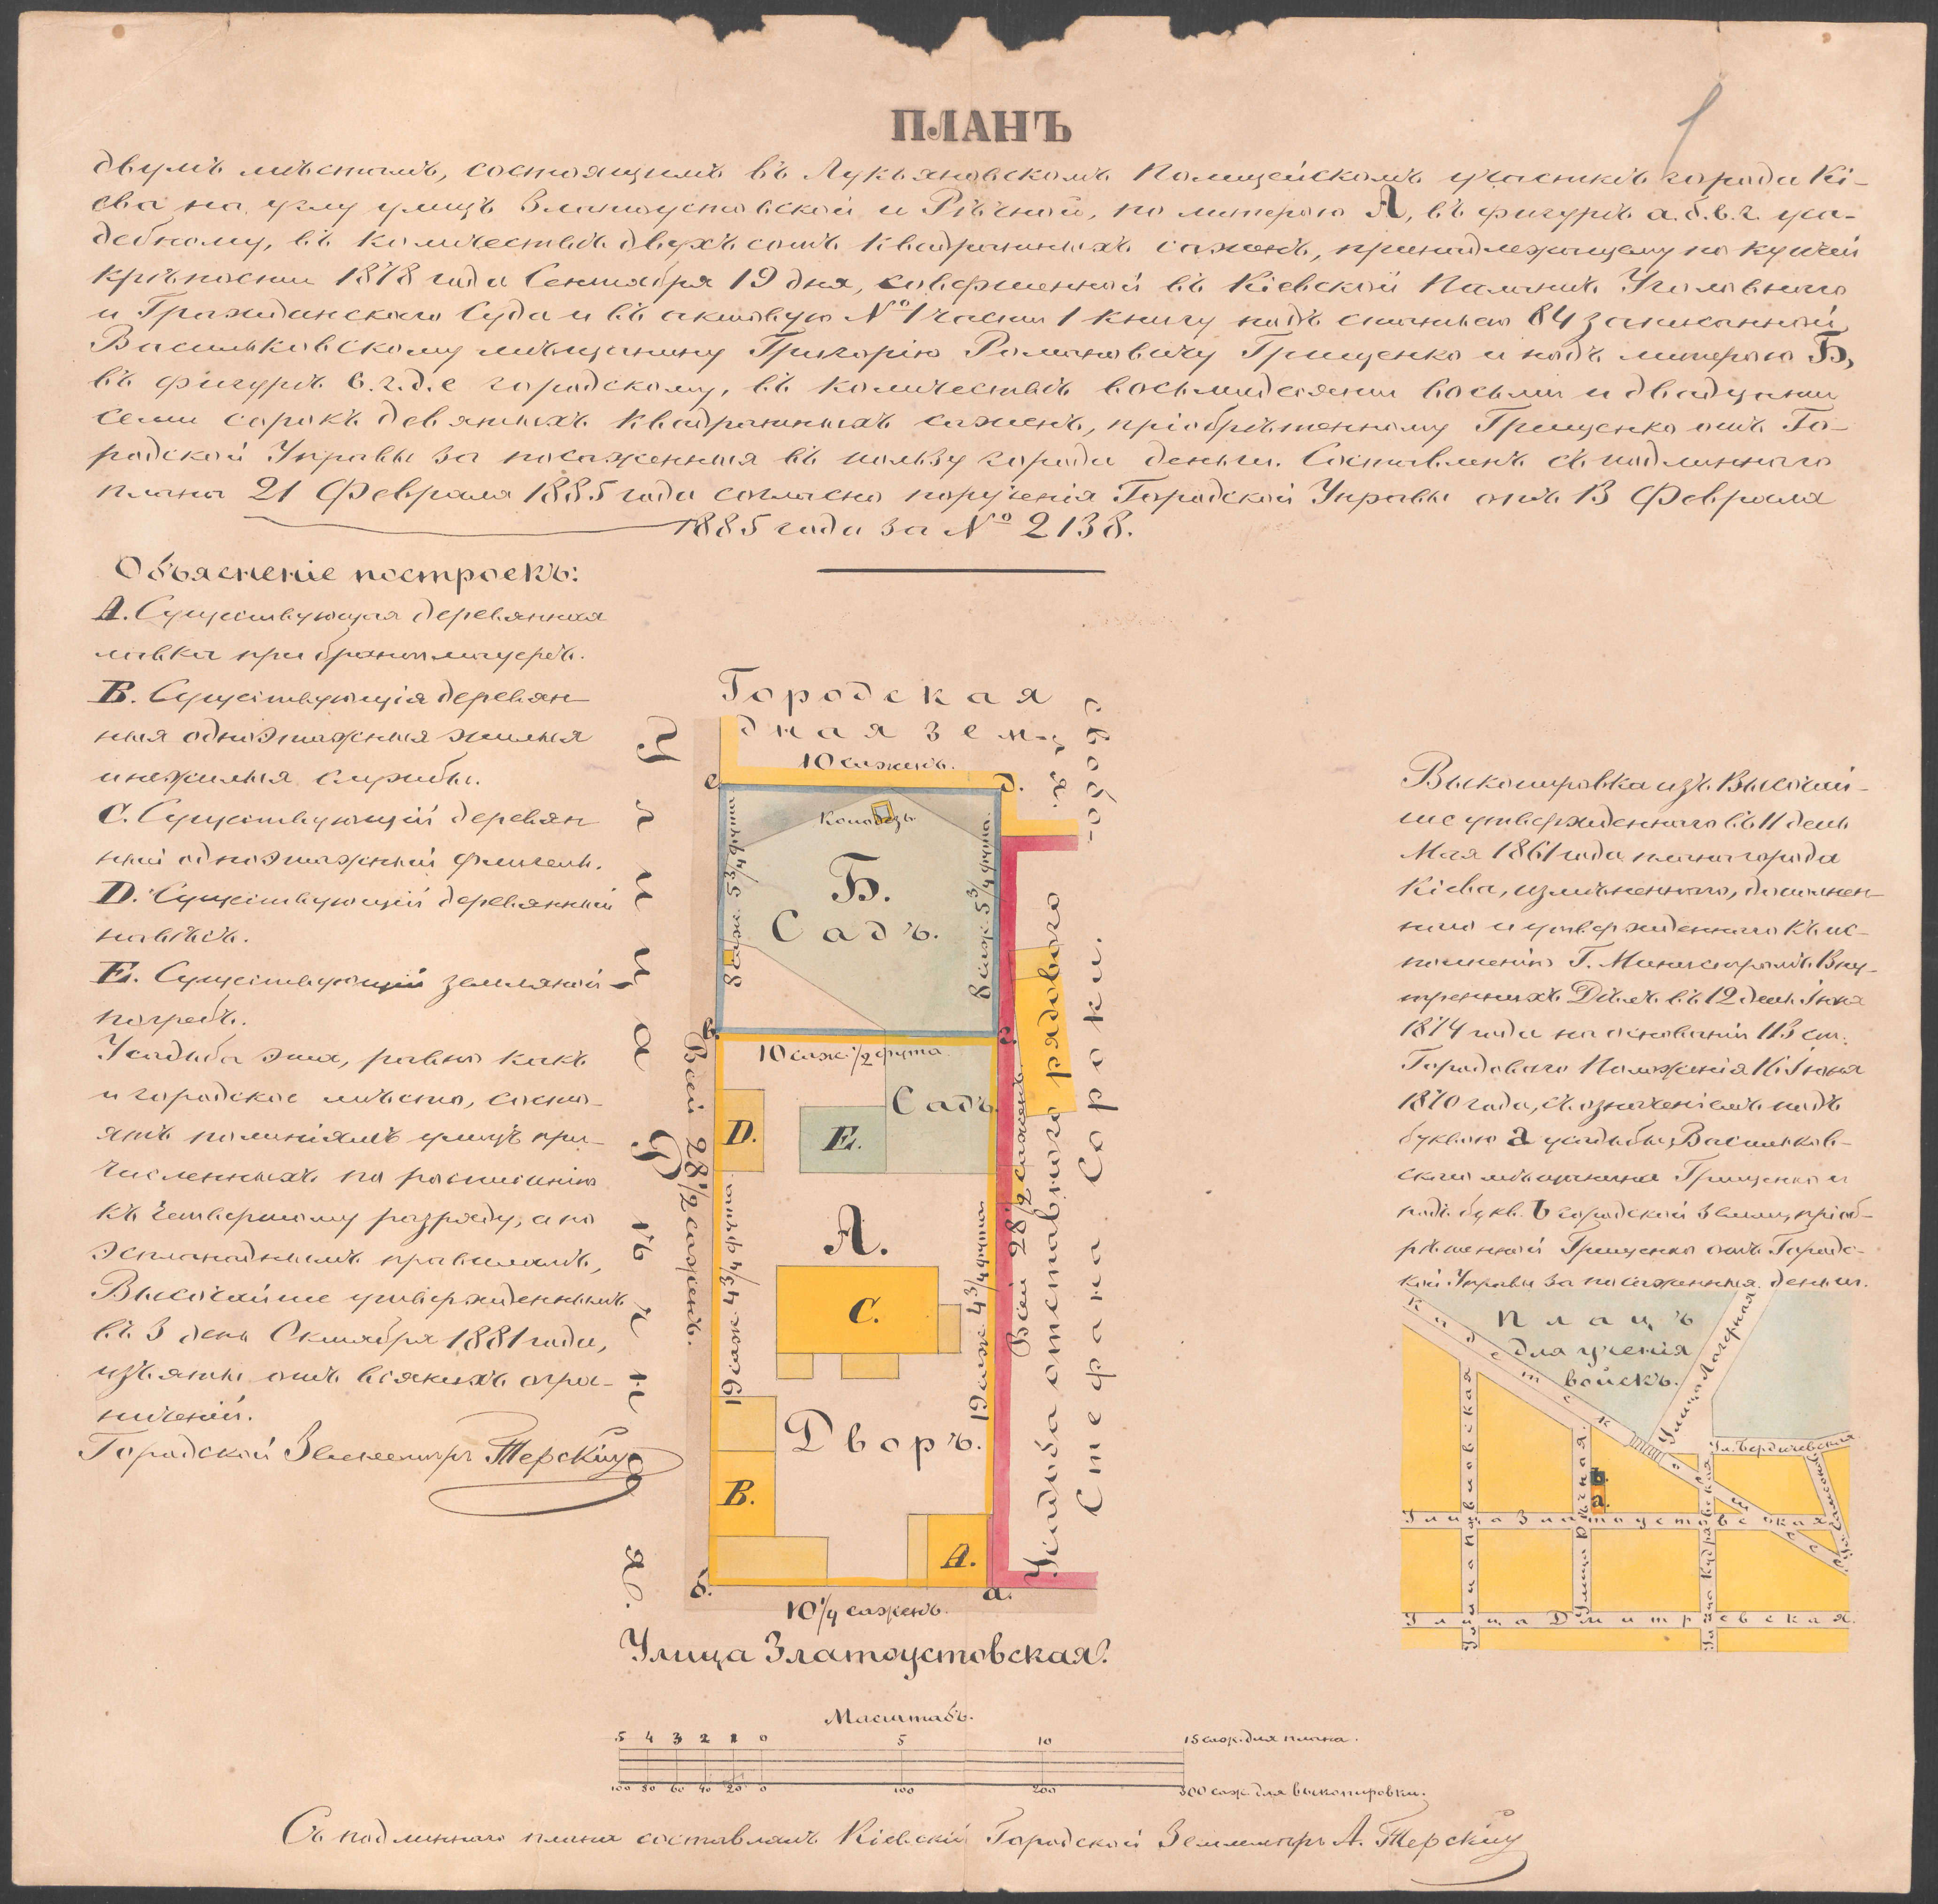 ПЛАНЪ
двумъ мѣстамъ, состоящимъ въ Лукьяновскомъ Полицейскомъ участкѣ города Кі-
ева на углу улицъ Златоустовской и Рѣчной, по литерою А, въ фигурѣ а.б.в.г. уса-
дебному, въ количествѣ двухъ сотъ квадратныхъ сажень, принадлежащему по купчей
крѣпости 1878 года Сентября 19 дня, совершенной въ Кіевской Палатѣ Уголовнаго
и Гражданскаго Суда и въ актовую № 1 части 1 книгу подъ статьею 84 записанной,
Васильковскому мѣщанину Григорію Романовичу Грищенко и подъ литерою Б,
въ фигурѣ в.г.д.е городскому, въ количествѣ восьмидесяти восьми и двадцати
семи сорокъ девятыхъ квадратныхъ сажень, пріобрѣтенному Грищенко отъ Го-
родской Управы за посаженныя въ пользу города деньги. Составленъ съ подлиннаго
плана 21 Февраля 1885 года согласно порученія Городской Управы отъ 13 Февраля
1885 года за № 2138.
Объясненіе построекъ:
А. Существующая деревянная
лавка при брантмауерѣ.
В. Существующія деревян
ныя одноэтажныя жилыя
и нежилыя службы.
С. Существующій деревян
ный одноэтажный флигель.
D. Существующій деревянный
навѣсъ.
Е. Существующій земляной
погребъ.
Усадьба эта, равно какъ
и городское мѣсто, состо-
ятъ по линіямъ улицъ при-
численныхъ по росписанію
къ четвертому разряду, а по
эспланаднымъ правиламъ,
Высочайше утвержденнымъ
въ 3 день Октября 1881 года,
изъяты отъ всякихъ огра-
ниченій.
Городской Землемѣръ Терскій
Городская
дная земля
10 сажень.
е
д.
Колодезь
8 саж. 5¾ фута
8 саж. 5¾ фута
Б.
Садъ.
в.
г.
10 саж. ½ фута
Садъ.
D.
E.
А.
C.
19 саж. 4¾ фута
19 саж. 4¾ фута
Всей 28½ сажень.
Всей 28½ сажень.
Дворъ.
B.
A.
б.
а.
10¼ сажень.
Улица Рѣчная.
Усадьба отставного рядового
Стефана Сороки.
Улица Златоустовская.
Выкопировка изъ Высочай-
ше утвержденнаго въ 11 день
Мая 1861 года плана города
Кіева, измѣненнаго, дополнен-
наго и утвержденнаго къ ис-
полненію Г. Министромъ Вну-
треннихъ Дѣлъ въ 12 день Іюня
1874 года на основаніи 113 ст.
Городоваго Положенія 16 Іюня
1870 года, съ означеніемъ подъ
буквою а усадьбы Васильков-
скаго мѣщанина Грищенко и
подъ букв. Ь городской земли, пріоб-
рѣтенной Грищенко отъ Городс-
кой Управы за посаженныя деньги.
Плацъ
для ученія
войскъ.
Улица Лагерная
Кадетск
Ул. Бердичевская
Улица Павловская
Улица Рѣчная.
Ь.
а.
Улица Златоустовская
Улица Кудрявская
Улица Дмитріевская.
Масштабъ.
5 4 3 2 1 0 5 10 15 саж. для плана.
100 80 60 40 20 0 100 200 300 саж. для выкопировки.
Съ подлиннаго плана составлялъ Кіевскій Городской Землемѣръ А. Терскій